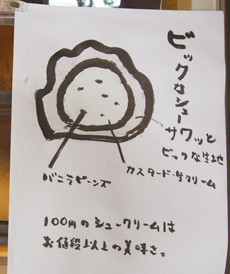 ビックなシュー
サクッと
ビックな生地
カスタード生クリーム
バニラビーンズ
100円のシュークリームは
お値段以上の美味さ。